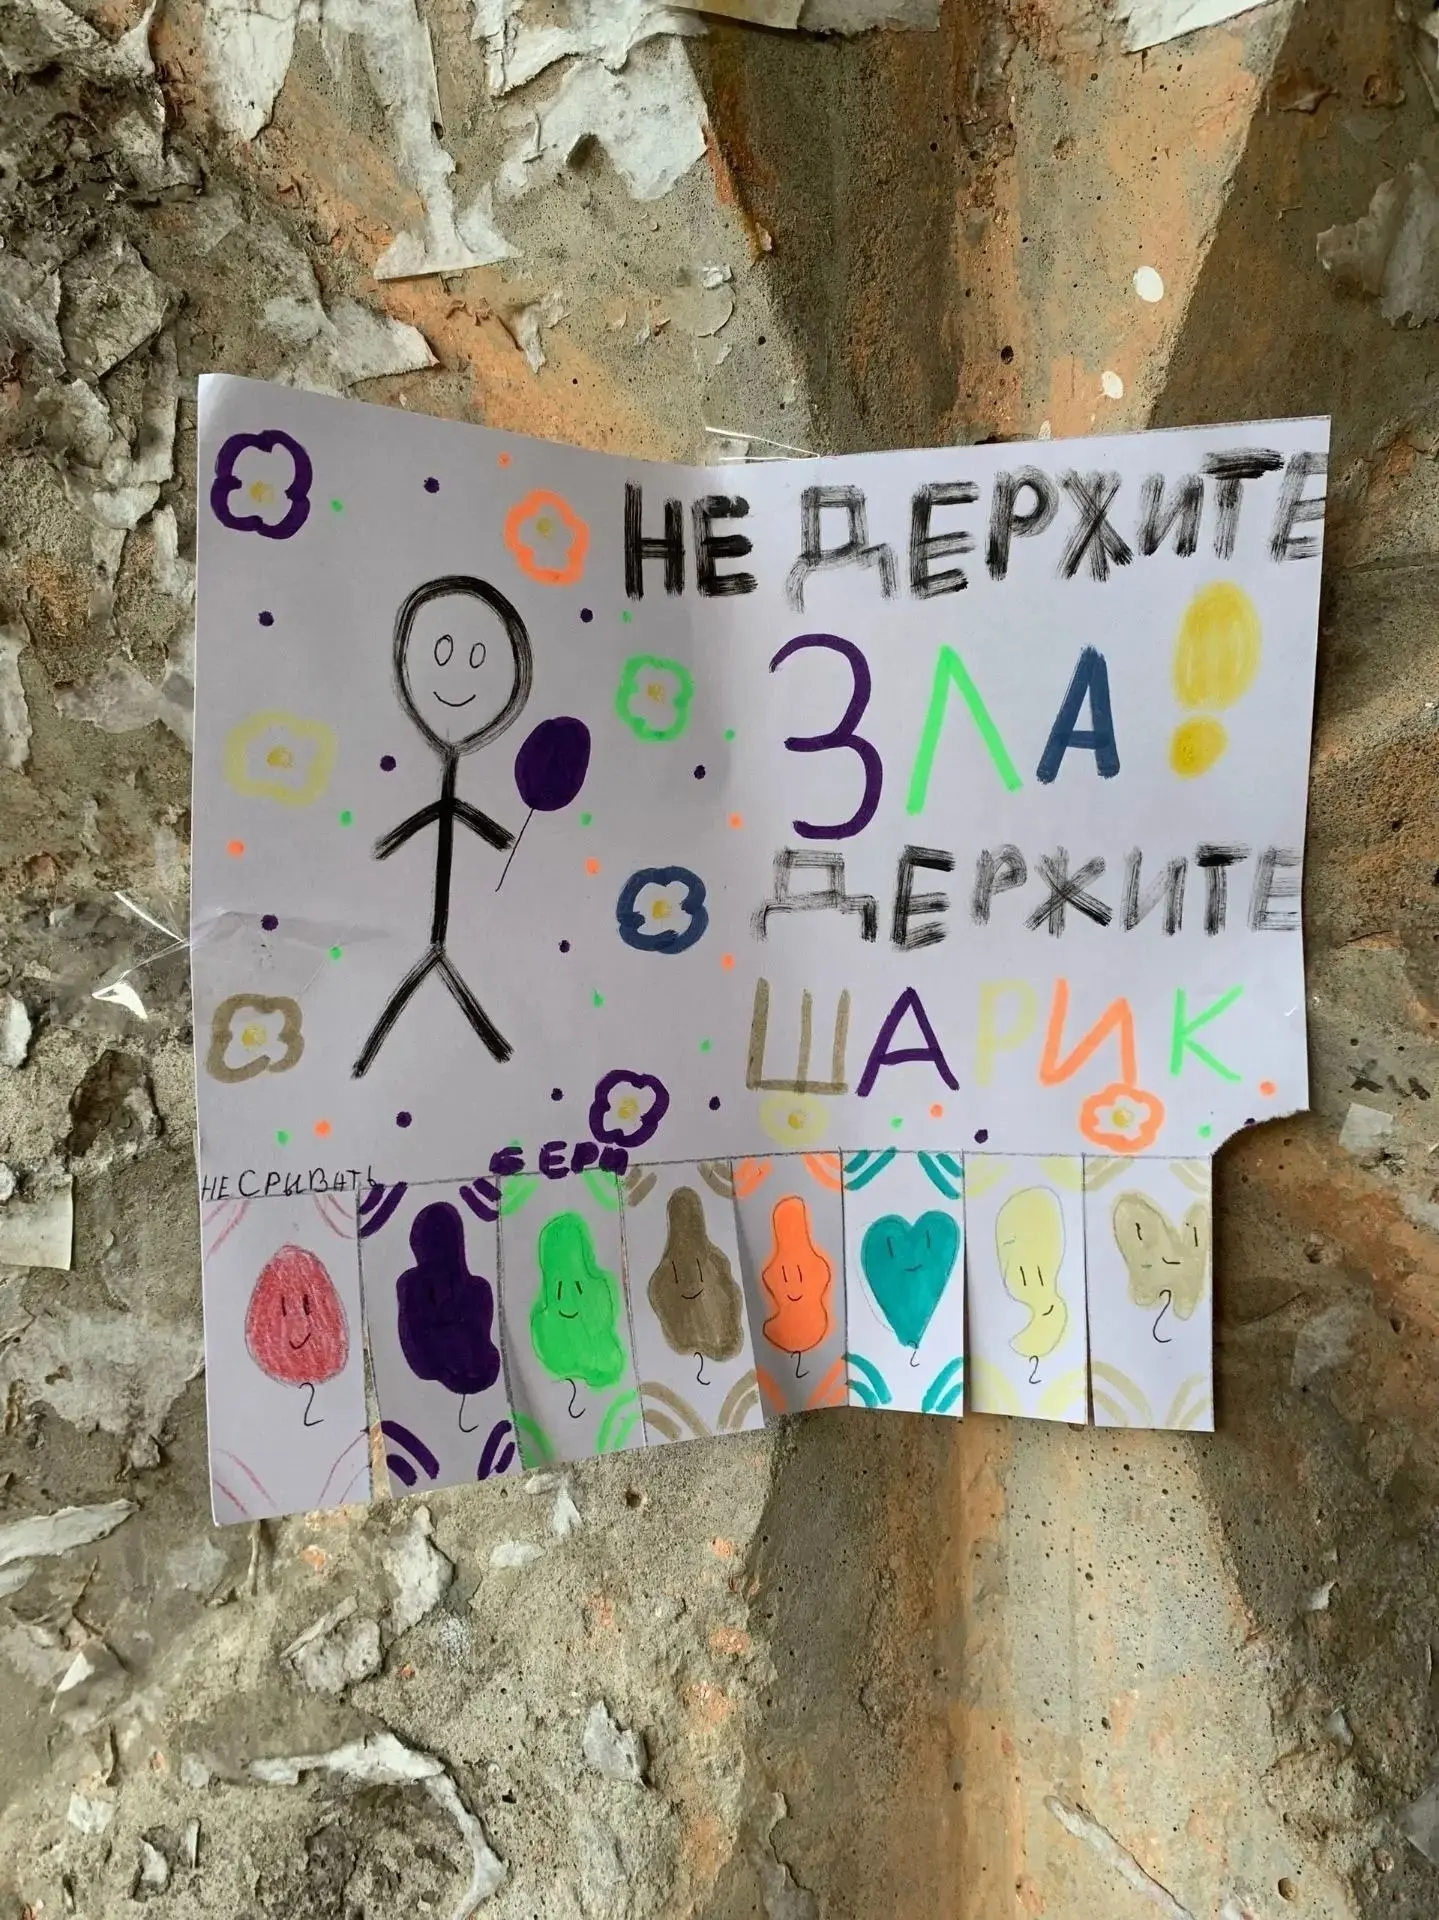 НЕ ДЕРЖИТЕ
ЗЛА!
ДЕРЖИТЕ
ШАРИК
НЕ СРЫВАТЬ
БЕРИ